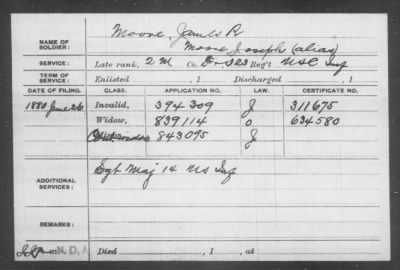 Moore, James R
NAME OF SOLDIER:
Moore Joseph (alias)
SERVICE: Late rank, 2 M Co. 23 Reg't USC Inf
TERM OF SERVICE: Enlisted , 1 Discharged , 1
DATE OF FILING. CLASS. APPLICATION NO. LAW. CERTIFICATE NO.
1880 June 26 Invalid, 394309 J 311675
Widow, 839114 O 634580
843095 J
ADDITIONAL SERVICES: Sgt Maj 14 US Inf
REMARKS:
N.D.A
Died , 1 , at